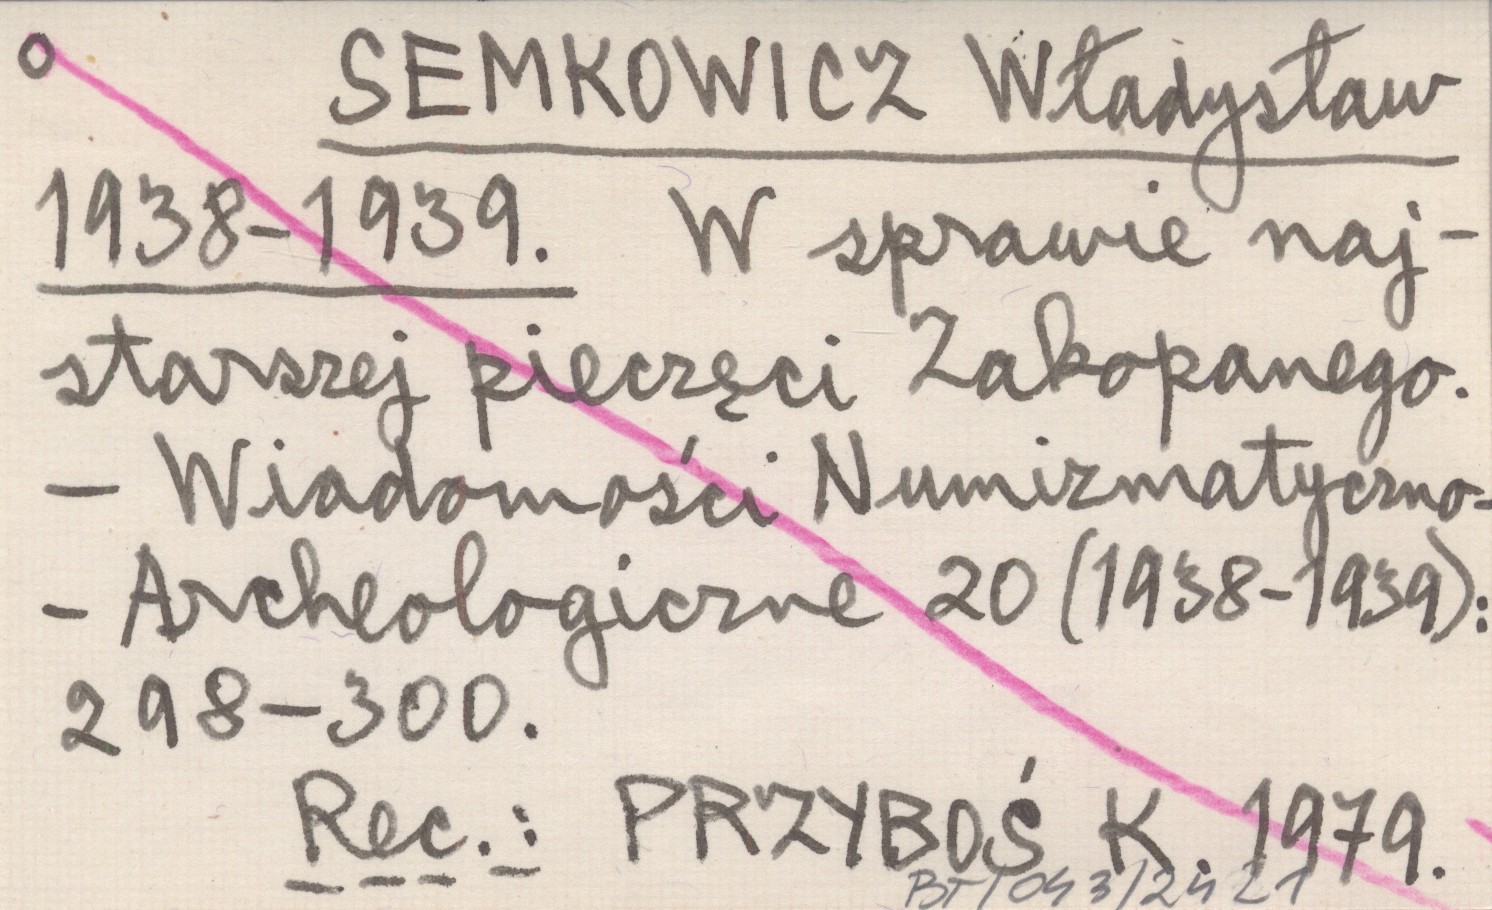 o SEMKOWICZ Władysław
1938-1939. W sprawie naj-
starszej pieczęci Zakopanego.
- Wiadomości Numizmatyczno-
- Archeologiczne 20 (1938-1939):
298-300.
Rec.: PRZYBOŚ K. 1979.